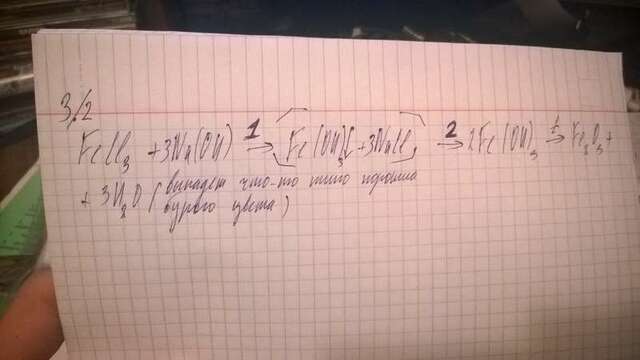 3.2
FeCl₃ + 3Na(OH) 1→ [Fe(OH)₃↓ + 3NaCl] 2→ 2Fe(OH)₃ t→ Fe₂O₃ +
+ 3H₂O (выпадет что-то типо порошка
бурого цвета)